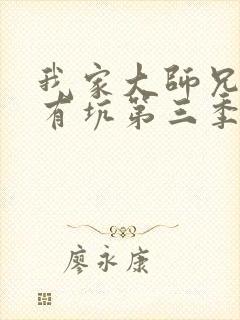 我家大師兄
有坑第三季
廖永康